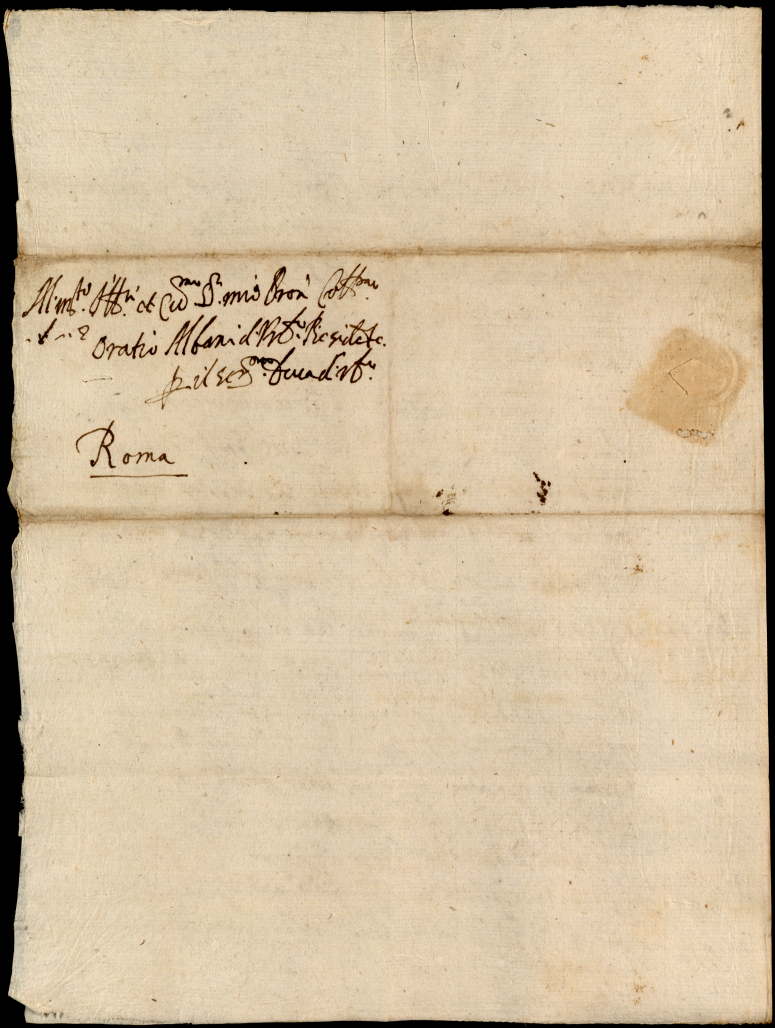 Al m.to Ill.ri et Ecc.mo S.r mio Pron Coll.mo
Oratio Albani d'Urb.o Residēte.
p il ser.mo Duca d'Urb.o
Roma